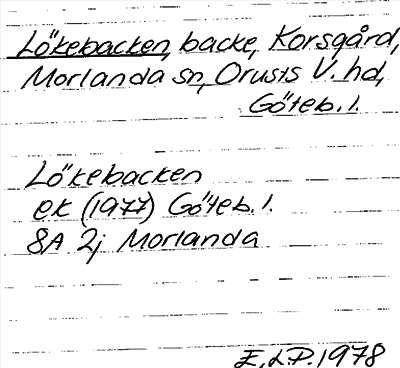 Lökebacken, backe, Korsgård,
Morlanda sn, Orusts V. hd,
Göteb. l.
Lökebacken
ek (1977) Göteb. l.
8A 2j Morlanda
E.L.P. 1978